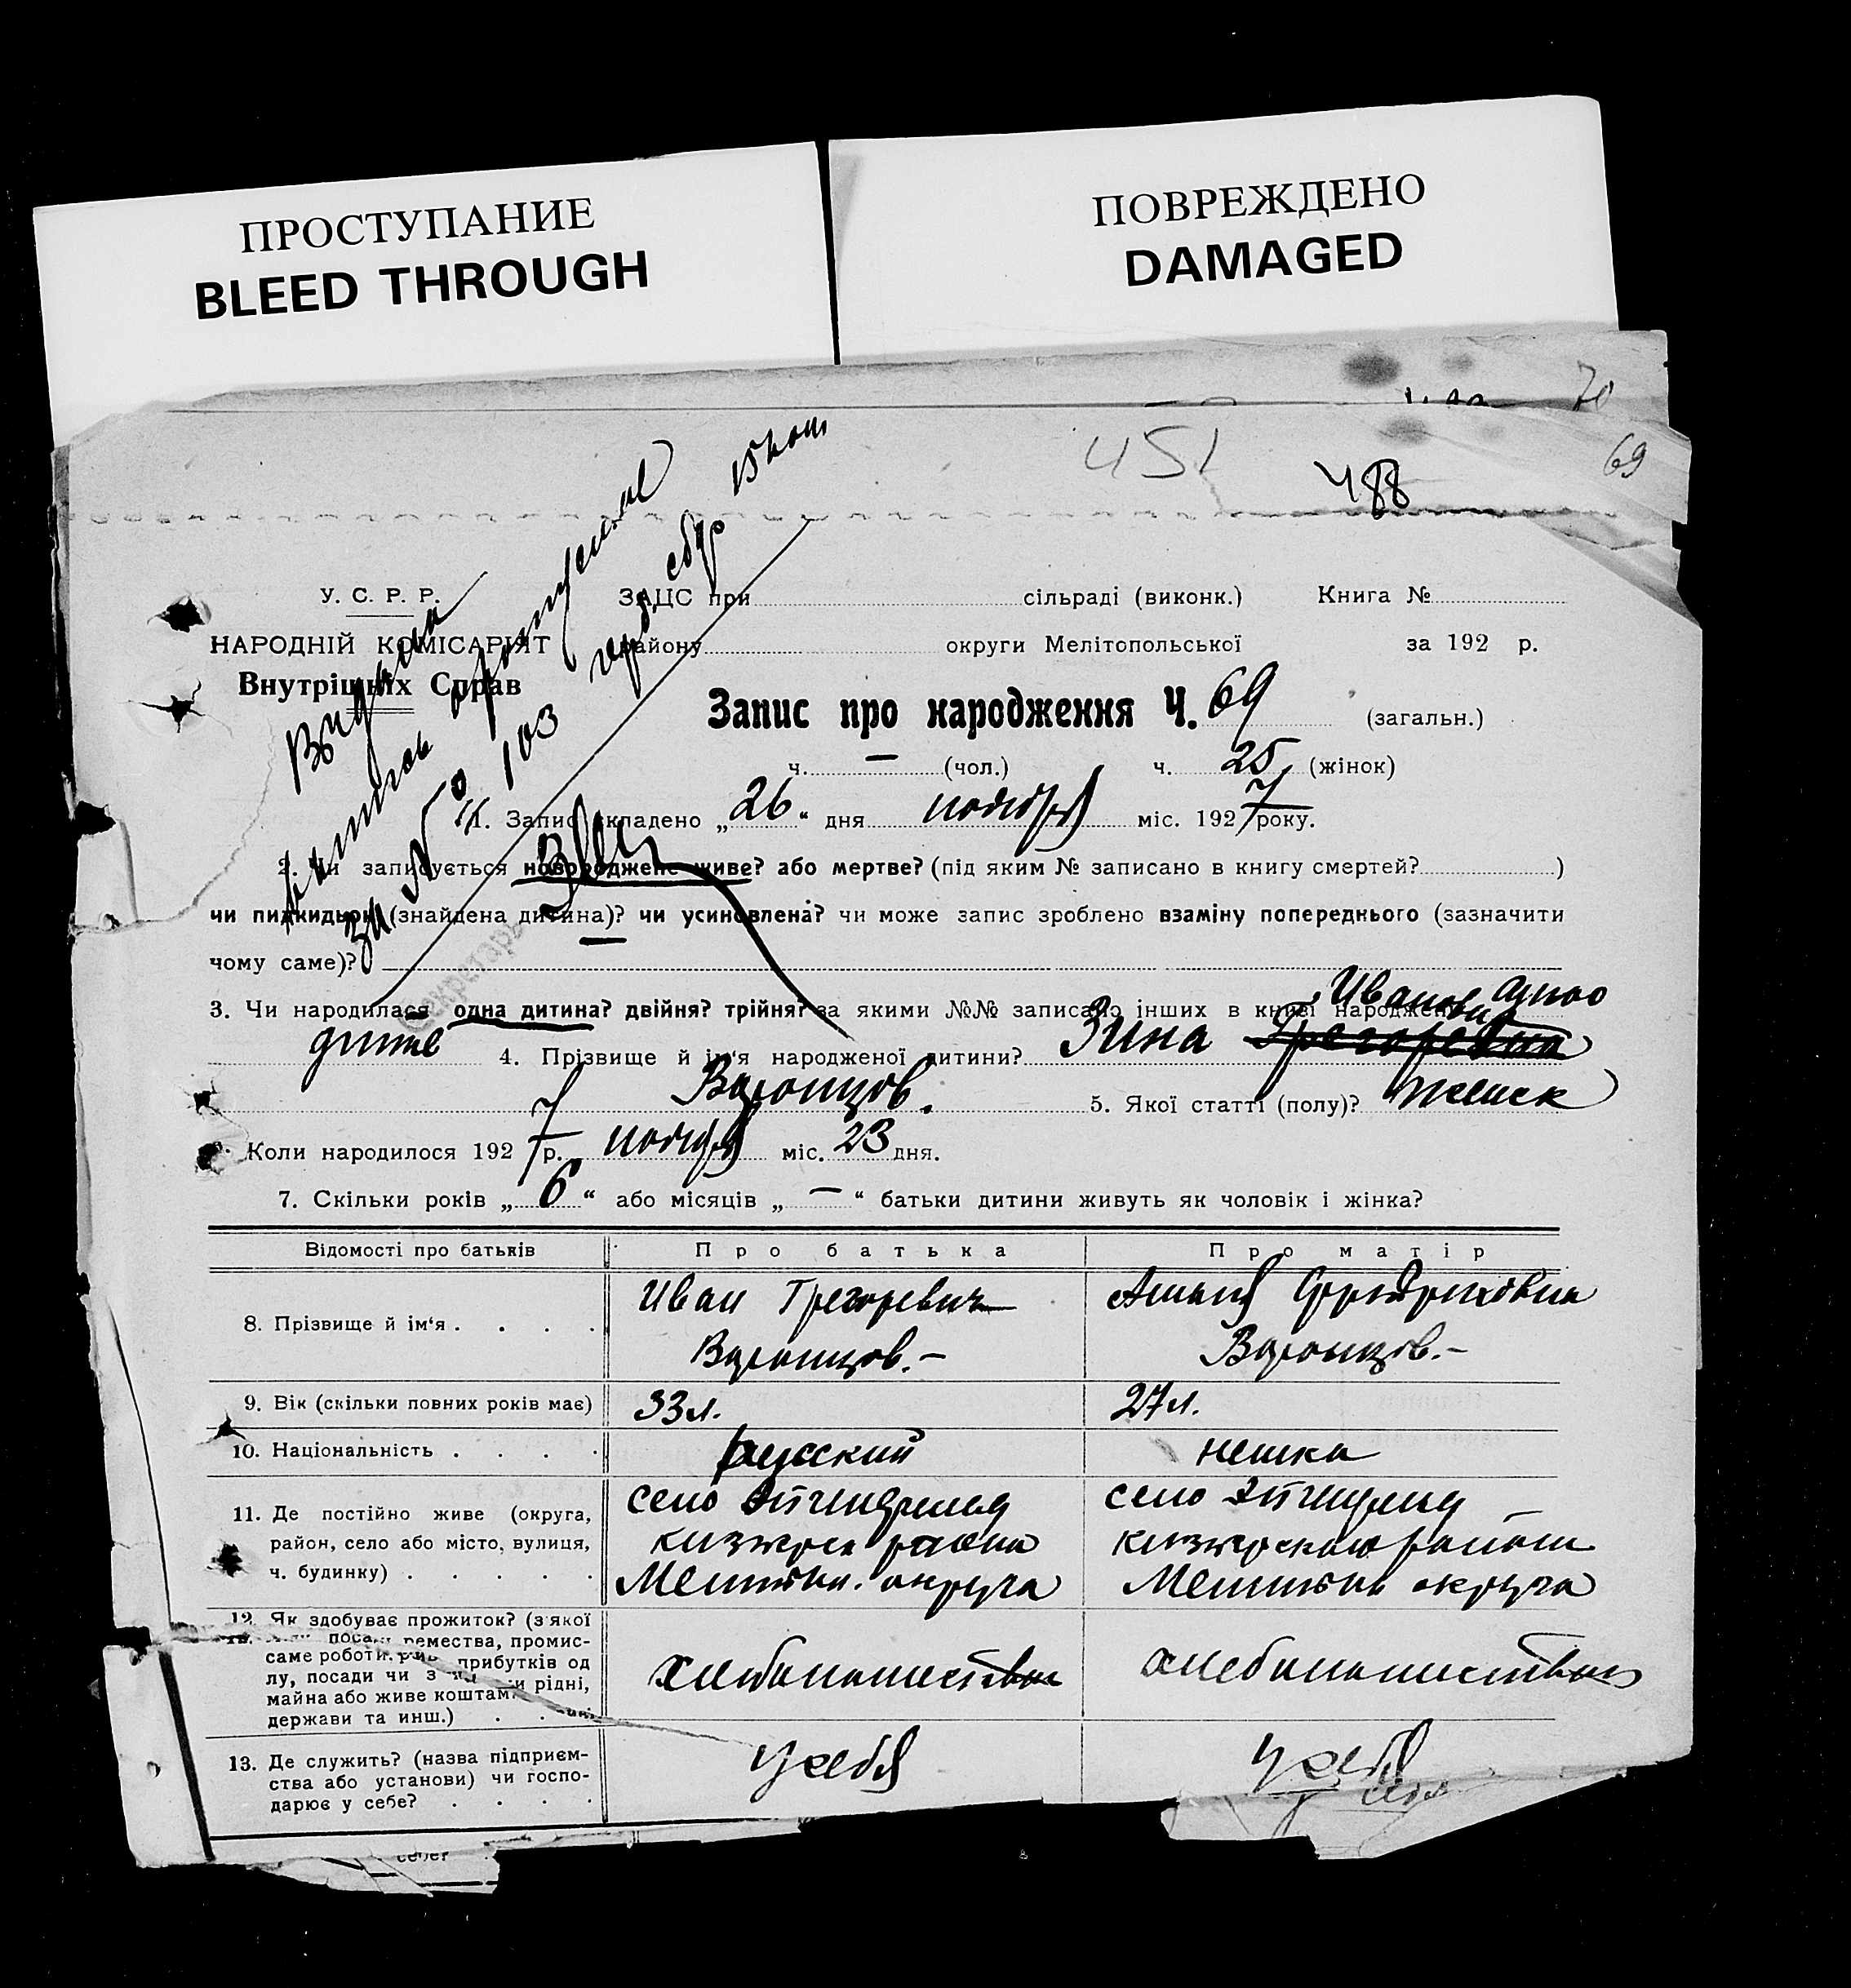 ПРОСТУПАНИЕ
BLEED THROUGH
ПОВРЕЖДЕНО
DAMAGED
70
69
451
488
У. С. Р. Р.
НАРОДНІЙ КОМІСАРІЯТ
Внутрішніх Справ
ЗАЦС при сільраді (виконк.) Книга №
району округи Мелітопольської за 192 р.
Запис про народження Ч. 69 (загальн.)
ч. — (чол.) ч. 25 (жінок)
за № 103
1. Запис складено „26“ дня ноября міс. 1927 року.
2. Чи записується новороджене живе? або мертве? (під яким № записано в книгу смертей? )
чи підкидьок (знайдена дитина)? чи усиновлена? чи може запис зроблено взаміну попереднього (зазначити
чому саме)?
Секретарь
3. Чи народилася одна дитина? двійня? трійня? за якими №№ записано інших в книзі народжень? одно
дитё 4. Прізвище й ім‘я народженої дитини? Зина Грегоревна Ивановна
Воронцов. 5. Якої статті (полу)? женск
6. Коли народилося 1927 р. ноября міс. 23 дня.
7. Скільки років „6“ або місяців „—“ батьки дитини живуть як чоловік і жінка?
Відомості про батьків Про батька Про матір
8. Прізвище й ім‘я . . . . Иван Грегоревич
Воронцов.—
Воронцов.—
9. Вік (скільки повних років має) 33 л. 27 л.
10. Національність . . . . русский немка
11. Де постійно живе (округа,
район, село або місто, вулиця,
ч. будинку) . . . . .
село
района
округа
село
района
округа
12. Як здобуває прожиток? (з якої
саме роботи, ремества, промис-
лу, посади чи з прибутків од
майна або живе коштами рідні,
держави та инш.) . .
хлебопашество хлебопашество
13. Де служить? (назва підприєм-
ства або установи) чи госпо-
дарює у себе? . . . .
у себя у себя
себя
себе?